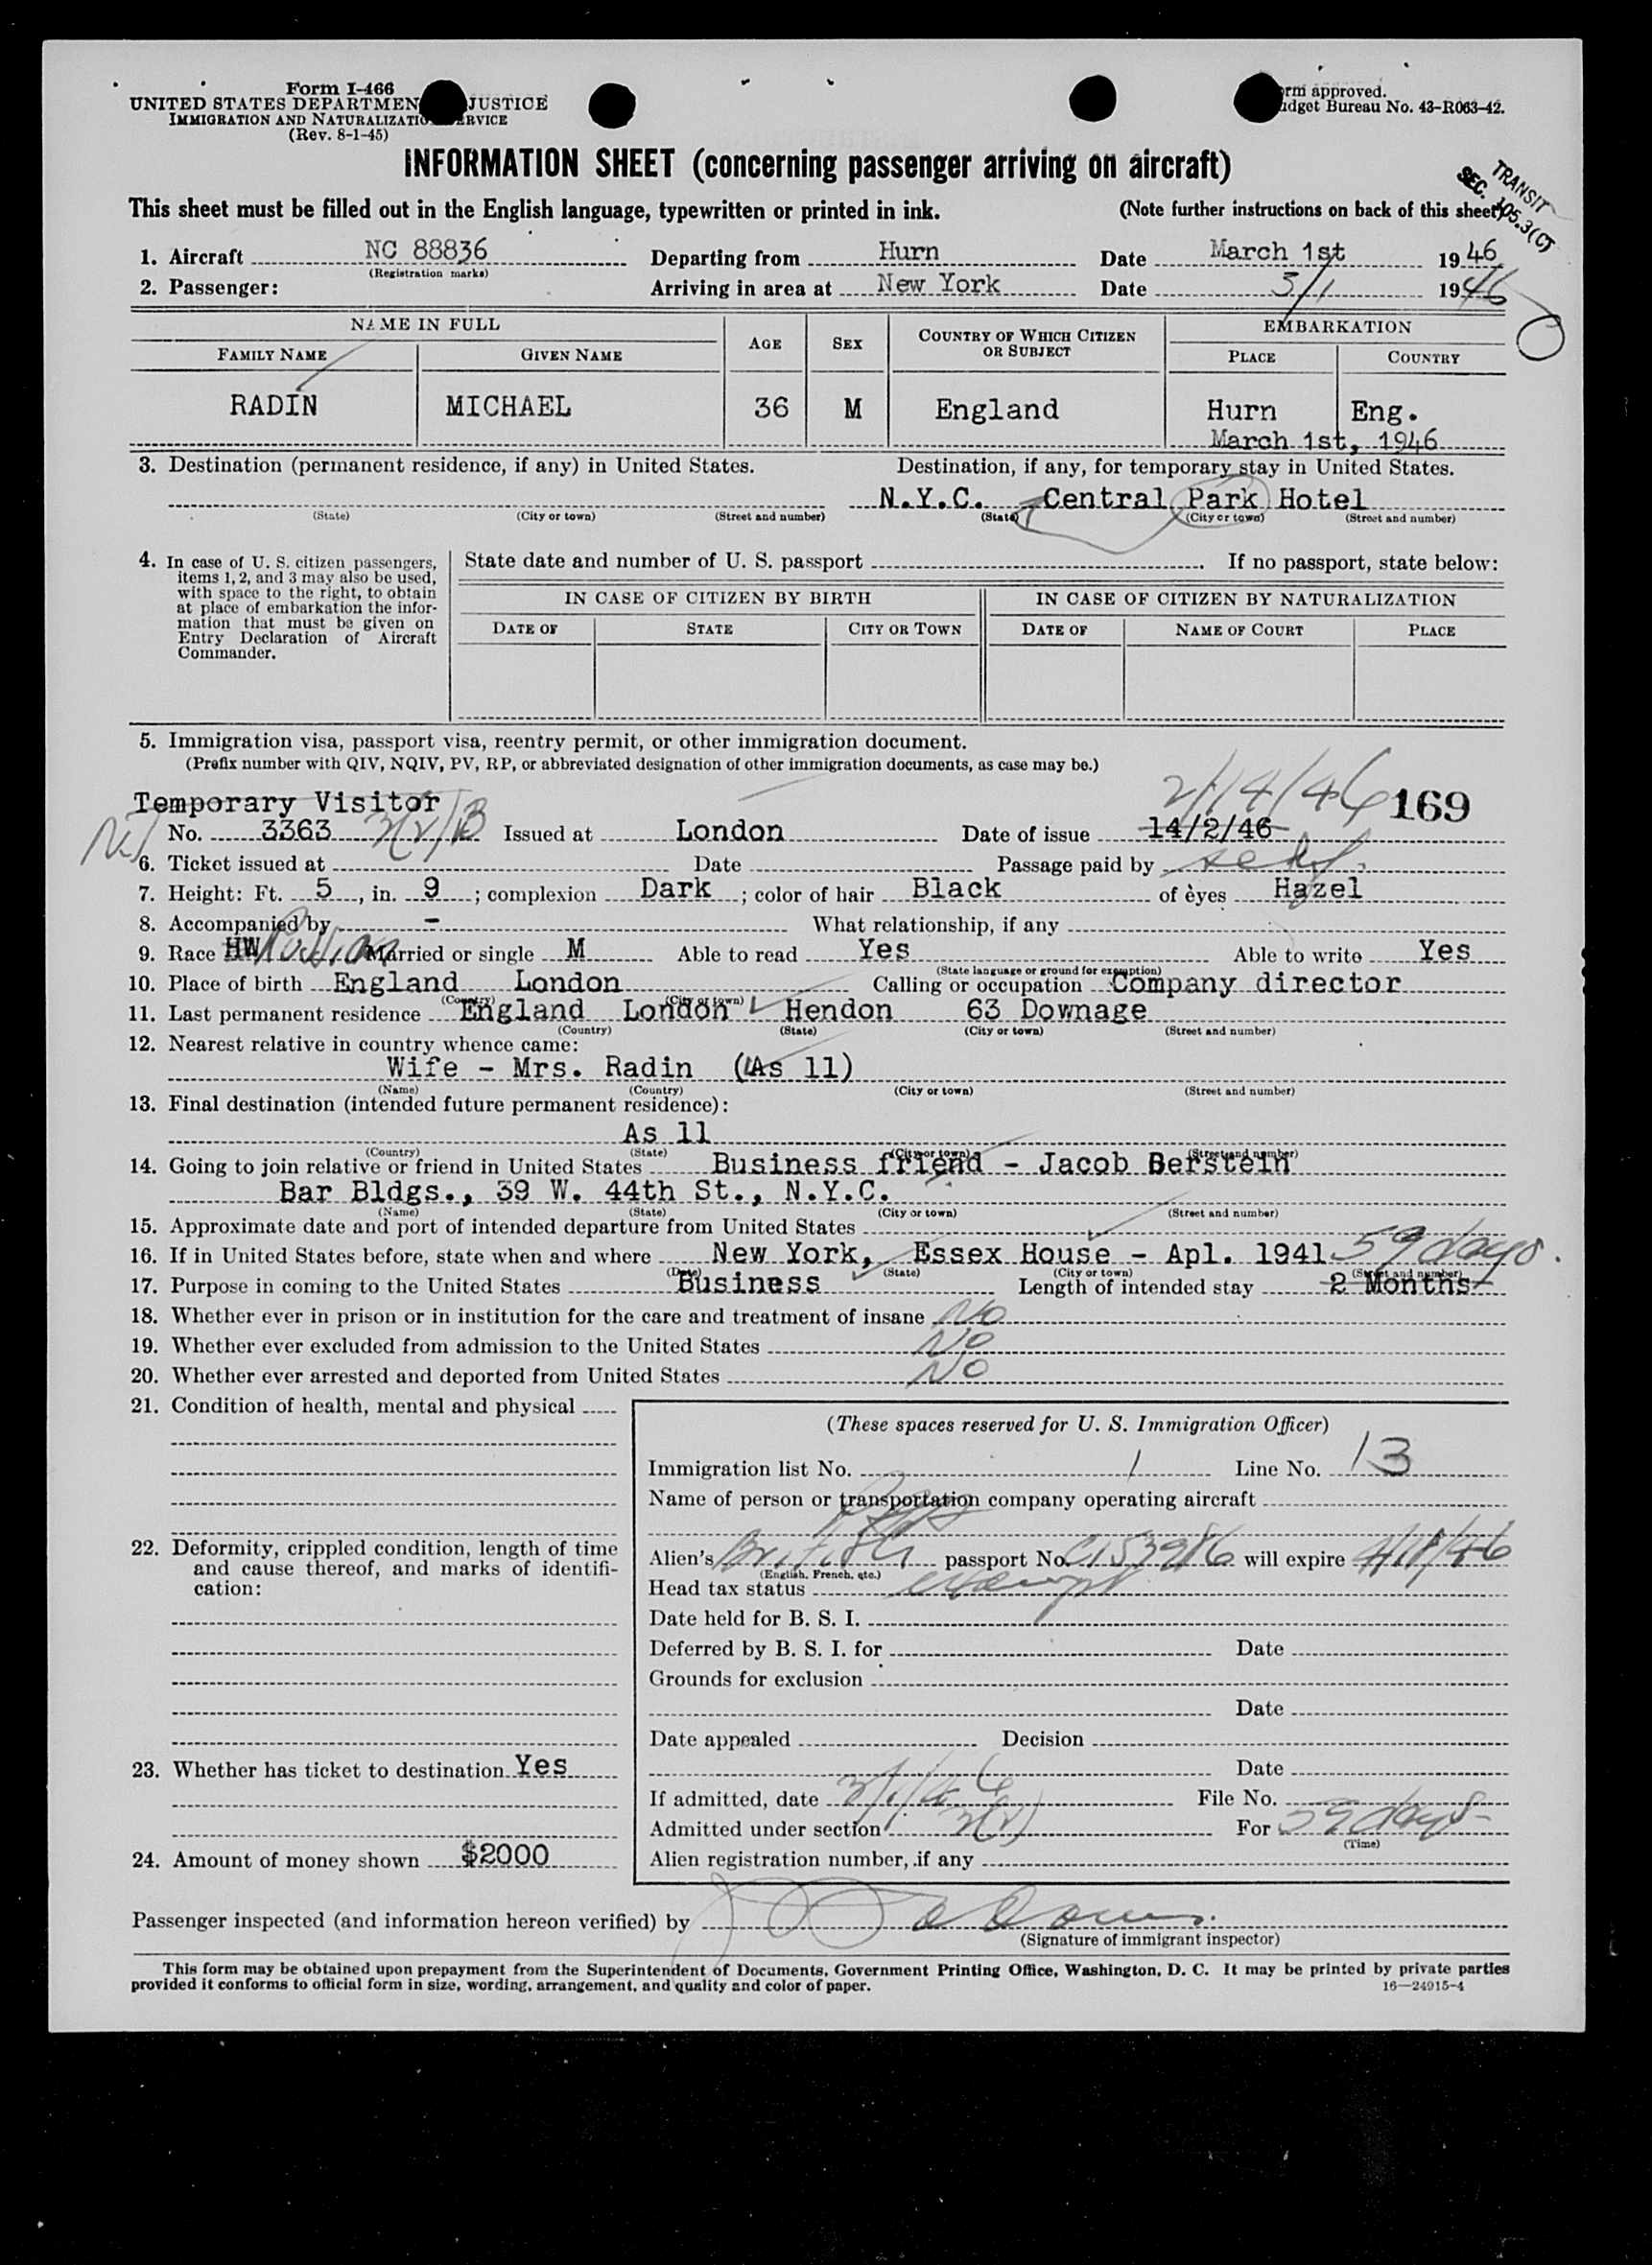 Form I-466
UNITED STATES DEPARTMEN JUSTICE
IMMIGRATION AND NATURALIZATIO ERVICE
(Rev. 8-1-45)
rm approved.
udget Bureau No. 43-R063-42.
INFORMATION SHEET (concerning passenger arriving on aircraft)
TRANSIT
SEC. 105.3(C)
This sheet must be filled out in the English language, typewritten or printed in ink. (Note further instructions on back of this sheet)
1. Aircraft NC 88836 Departing from Hurn Date March 1st 1946
(Registration marks)
2. Passenger: Arriving in area at New York Date 3/1 1946
NAME IN FULL AGE SEX COUNTRY OF WHICH CITIZEN OR SUBJECT EMBARKATION
FAMILY NAME GIVEN NAME PLACE COUNTRY
RADIN MICHAEL 36 M England Hurn Eng.
March 1st, 1946
3. Destination (permanent residence, if any) in United States. Destination, if any, for temporary stay in United States.
N.Y.C. Central Park Hotel
(State) (City or town) (Street and number) (State) (City or town) (Street and number)
4. In case of U. S. citizen passengers, items 1, 2, and 3 may also be used, with space to the right, to obtain at place of embarkation the information that must be given on Entry Declaration of Aircraft Commander.
State date and number of U. S. passport If no passport, state below:
IN CASE OF CITIZEN BY BIRTH IN CASE OF CITIZEN BY NATURALIZATION
DATE OF STATE CITY OR TOWN DATE OF NAME OF COURT PLACE
5. Immigration visa, passport visa, reentry permit, or other immigration document.
(Prefix number with QIV, NQIV, PV, RP, or abbreviated designation of other immigration documents, as case may be.)
2/14/46 169
Temporary Visitor
No. 3363 3(2)B Issued at London Date of issue 14/2/46
6. Ticket issued at Date Passage paid by self
7. Height: Ft. 5, in. 9; complexion Dark; color of hair Black of eyes Hazel
8. Accompanied by - What relationship, if any
9. Race HW Russian Married or single M Able to read Yes Able to write Yes
(State language or ground for exemption)
10. Place of birth England London Calling or occupation Company director
(Country) (City or town)
11. Last permanent residence England London Hendon 63 Downage
(Country) (State) (City or town) (Street and number)
12. Nearest relative in country whence came:
Wife - Mrs. Radin (As 11)
(Name) (Country) (City or town) (Street and number)
13. Final destination (intended future permanent residence):
As 11
(Country) (State) (City or town) (Street and number)
14. Going to join relative or friend in United States Business friend - Jacob Berstein
Bar Bldgs., 39 W. 44th St., N.Y.C.
(Name) (State) (City or town) (Street and number)
15. Approximate date and port of intended departure from United States
16. If in United States before, state when and where New York, Essex House - Apl. 1941 59 days.
(Date) (State) (City or town) (Street and number)
17. Purpose in coming to the United States Business Length of intended stay 2 Months
18. Whether ever in prison or in institution for the care and treatment of insane No
19. Whether ever excluded from admission to the United States No
20. Whether ever arrested and deported from United States No
21. Condition of health, mental and physical
(These spaces reserved for U. S. Immigration Officer)
Immigration list No. 1 Line No. 13
Name of person or transportation company operating aircraft
22. Deformity, crippled condition, length of time and cause thereof, and marks of identification:
Alien's British passport No. will expire
(English, French, etc.)
Head tax status exempt
Date held for B. S. I.
Deferred by B. S. I. for Date
Grounds for exclusion
Date
Date appealed Decision
23. Whether has ticket to destination Yes
Date
If admitted, date 3/1/46 File No.
Admitted under section 3(2) For 59 days
(Time)
24. Amount of money shown $2000
Alien registration number, if any
Passenger inspected (and information hereon verified) by
(Signature of immigrant inspector)
This form may be obtained upon prepayment from the Superintendent of Documents, Government Printing Office, Washington, D. C. It may be printed by private parties
provided it conforms to official form in size, wording, arrangement, and quality and color of paper. 16—24915-4